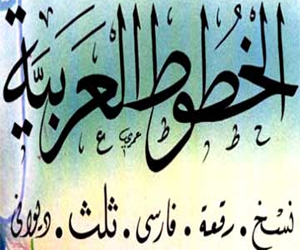 الخطوط العربيّة
نسخ . رقعة . فارسى . ثلث . ديوانى